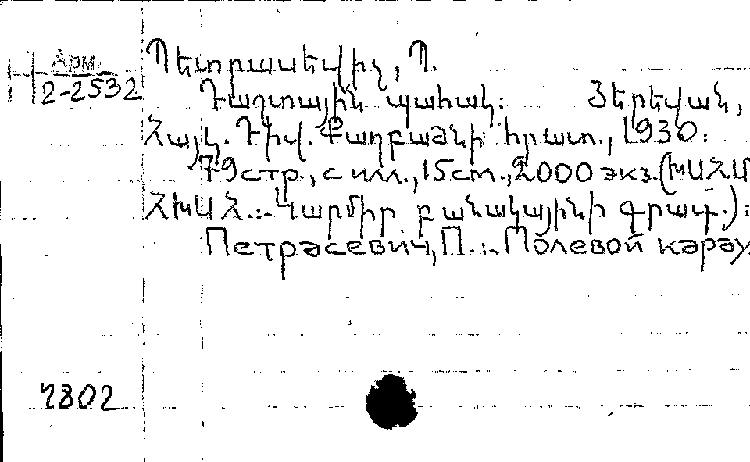 Арм. Պետրասեվիչ, Պ.
2-2532 Դաշտային պահակ: Յերեվան,
Հայկ. Դիվ. Քաղբաժնի հրատ., 1930:
79 стр., с илл., 15 cm., 2000 экз. (ԽՍՀՄ
ՀԽՍՀ.:- Կարմիր բանակայինի գրադ.):
Петрасевич, П.:- Полевой карау
7802